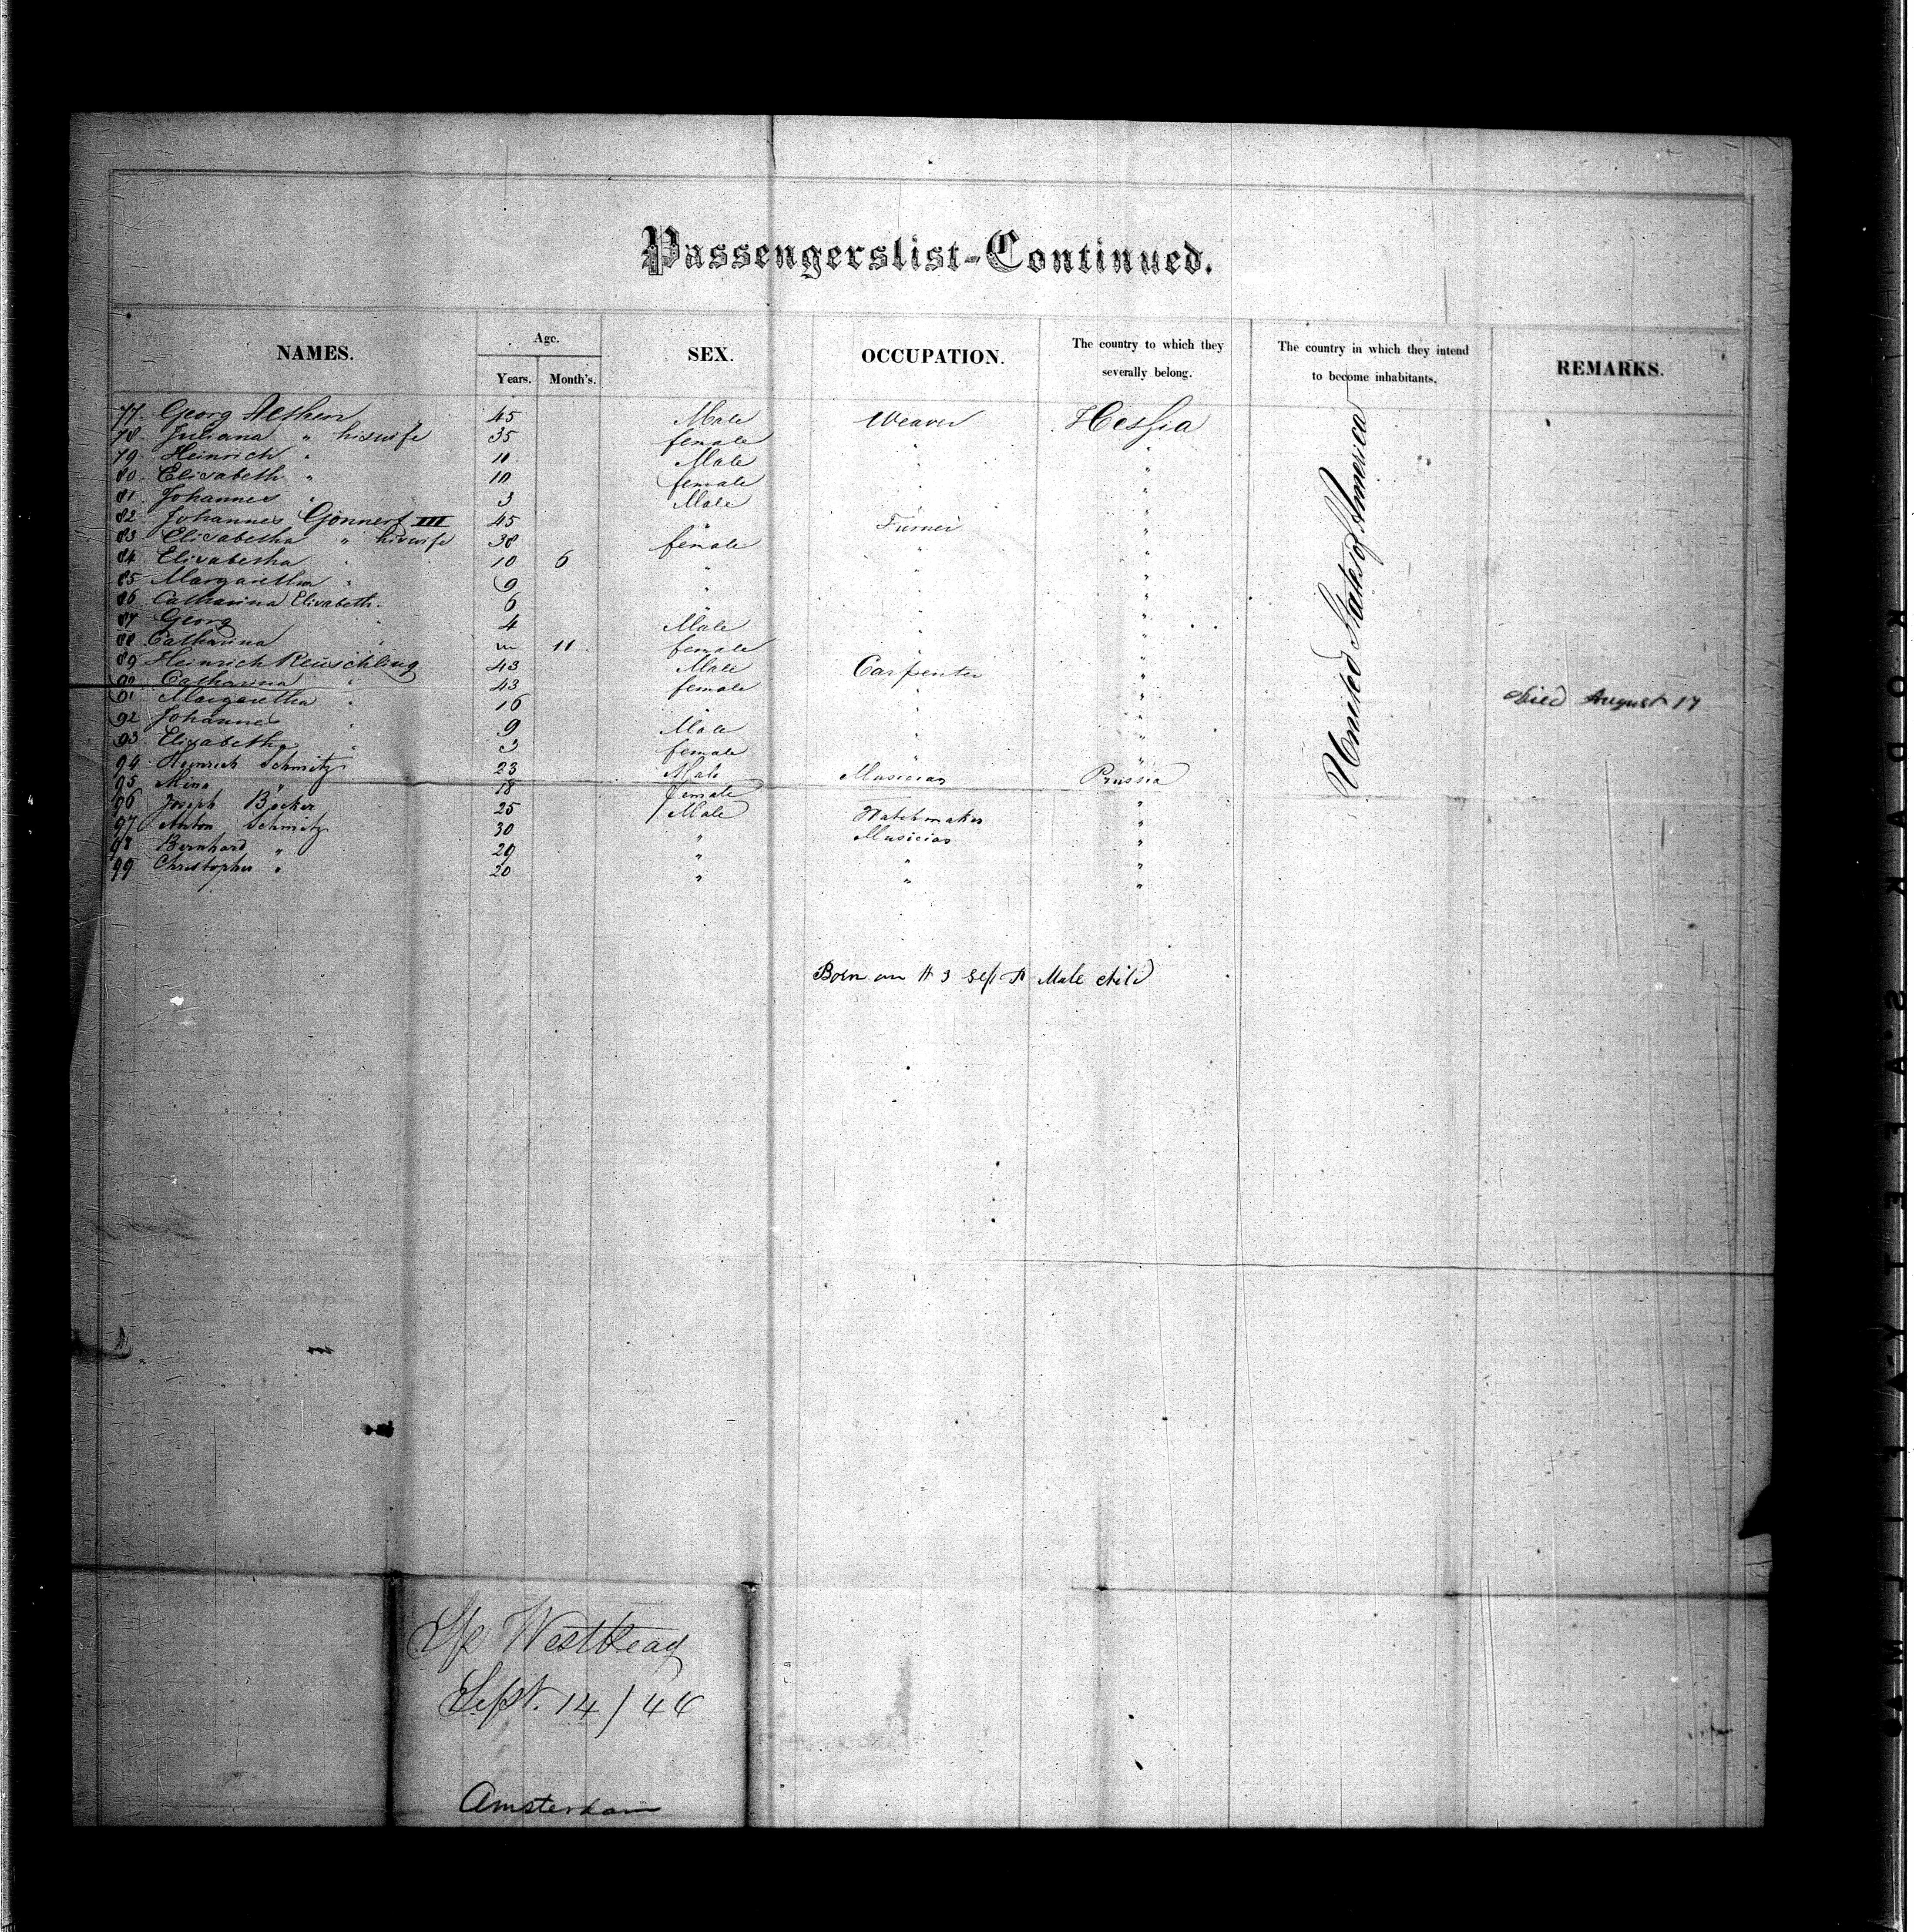 Passengerslist-Continued.
NAMES. Age. Years. Month's. SEX. OCCUPATION. The country to which they severally belong. The country in which they intend to become inhabitants. REMARKS.
77. Georg 45 Male Weaver Hessia
78. Juliana " his wife 35 female " "
79. Heinrich " 11 Male " "
80. Elisabeth " 10 female " "
81. Johannes " 3 Male " "
82 Johannes Gönnert III 45 " Turner "
83 Elisabetha " his wife 38 female " "
84. Elisabetha " 10 6 " " "
85 Margaretha " 9 " " "
86 Catharina Elisabeth. 6 " " "
87 Georg " 4 Male " "
88 Catharina " 11 female " "
89 Heinrich Reüschling 43 Male Carpenter "
90 Catharina " 43 female " "
91 Margaretha " 16 " " " Died August 17
92 Johannes " 9 Male " "
93 Elisabetha " 3 female " "
94 Heinrich Schmitz 23 Male Musician Prussia
95 Mina " 18 female "
96 Joseph Böcker 25 Male Watchmaker "
97 Anton Schmitz 30 " Musician "
98 Bernhard " 29 " " "
99 Christopher " 20 " " "
United States of America
Born on 3 Sept A Male child
Sept. 14/46
Amsterdam